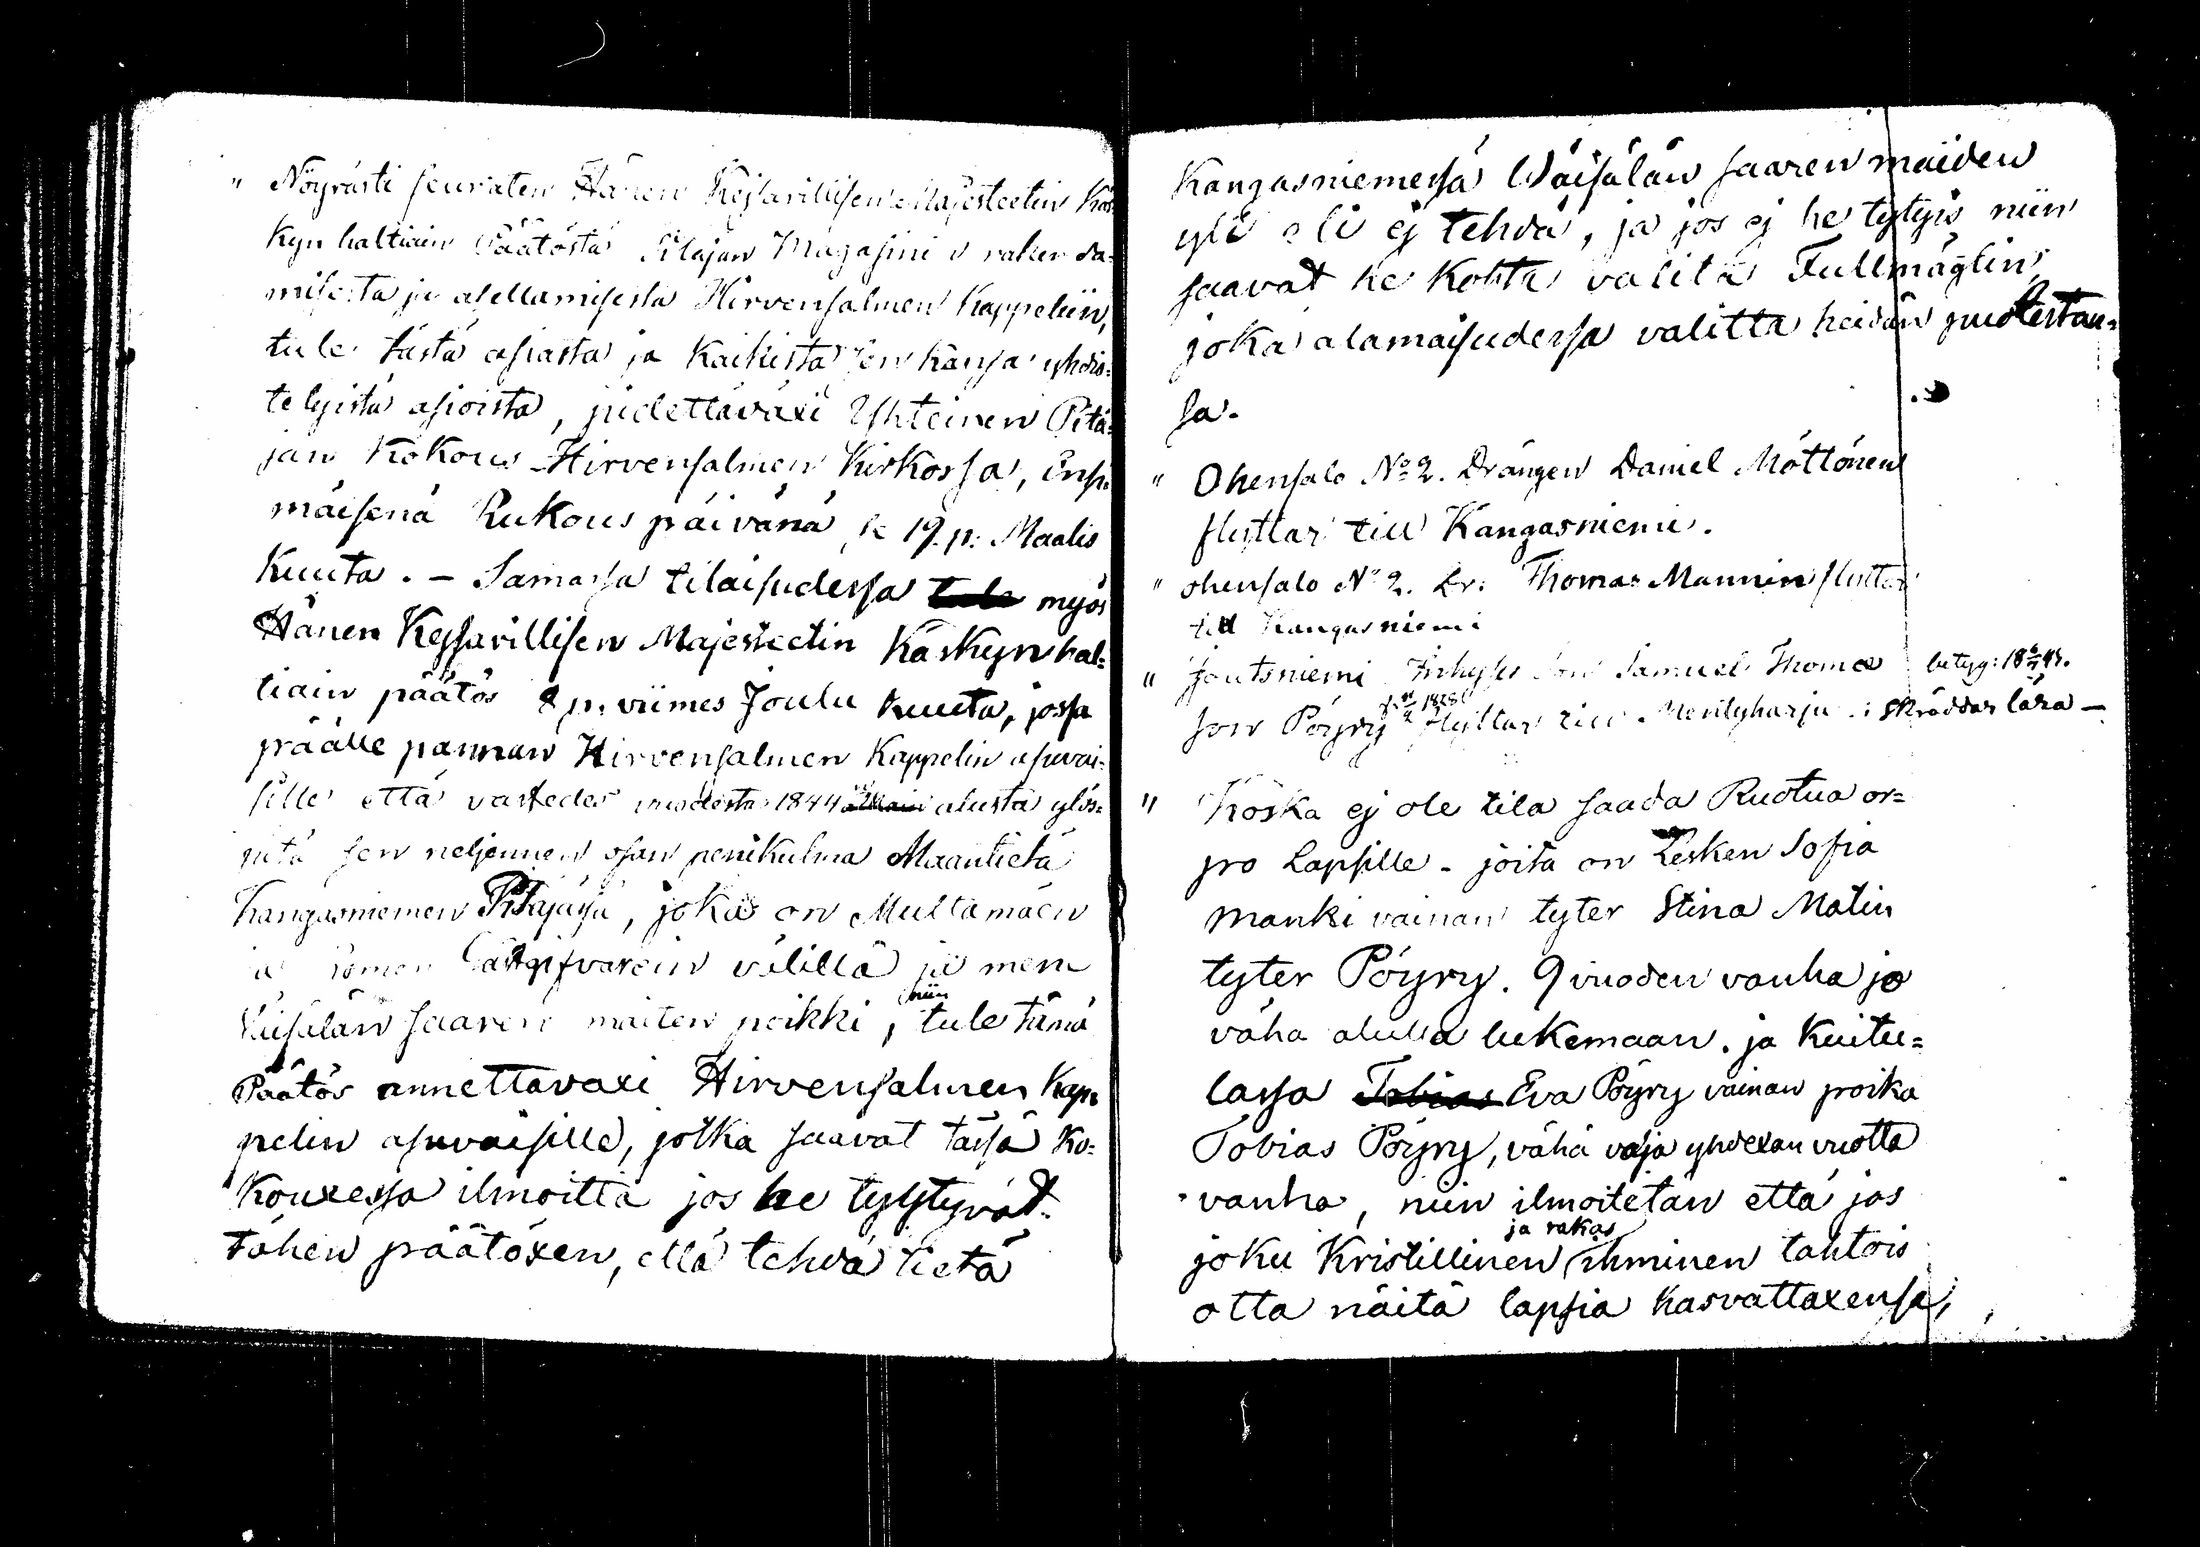 " Nöyrästi seuraten Hänen Kejsarillisen Majesteetin Käs-
kyn haltiain Päätöstä Pitäjän Magasini n rakenda-
misesta ja asellamisesta Hirvensalmen Kappeliin,
tule tästä asiasta ja kaikista sen kansa yhdis-
telyistä asioista, pidettäväxi Yhteinen Pitä-
jän Kokous Hirvensalmen Kirkossa, Ensi
mäisenä Rukous päivänä, se 19. p. Maalis
Kuuta. - Samassa tilaisudessa tule myös
Hänen Kejsarillisen Majesteetin Käskyn hal-
tiain päätös 2 p. viimes Joulu kuuta, jossa
päälle pannan Hirvensalmen Kappelin asuvai-
sille että vastedes vuodesta 1844 alusta ylös-
pitä sen neljennen osan penikulma Maantietä
Kangasniemen Pitäjäsä, joka on Multamäen
ja Gästgifvarein välillä ja mene
Väisälän saaren maiten poikki, niin tule tämä
Päätös annettavaxi Hirvensalmen Kap-
pelin asuvaisille, jotka saavat täsä Ko-
Kouxessa ilmoitta jos he tytyvät
tähen päätöxen, että tehdä tietä
Kangasniemessä Wäisälän saaren maiden
yli eli ej tehdä, ja jos ej he tytyis niin
saavat he kohta valita Fullmägtin,
joka alamaisudessa valitta heidän puolestan-
sa.
" Ohensalo No 2. Drängen Daniel Möttönen
flyttar till Kangasniemi.
" Ohensalo No 2. Dr. Thomas Mannin flyttar
till Kangasniemi
" Joutsniemi Inhyses Son Samuel Thomæ betyg: 18 43.
son Pöyry 1828 flyttar till Mentyharju i skräddar lära -
" Koska ej ole tila saada Ruotua or-
po Lapsille - joita on Lesken Sofia
Manki vainan tyter Stina Matin
tyter Pöyry. 9 vuoden vanha ja
vähä alulla lukemaan. ja Kuitu-
lassa Tobias Eva Pöyry vainan poika
Tobias Pöyry, vähä vaja yhdexan vuotta
vanha, niin ilmoitetan että jos
joku Kristillinen ja rakas ihminen tahtois
otta näitä lapsia kasvattaxensa,